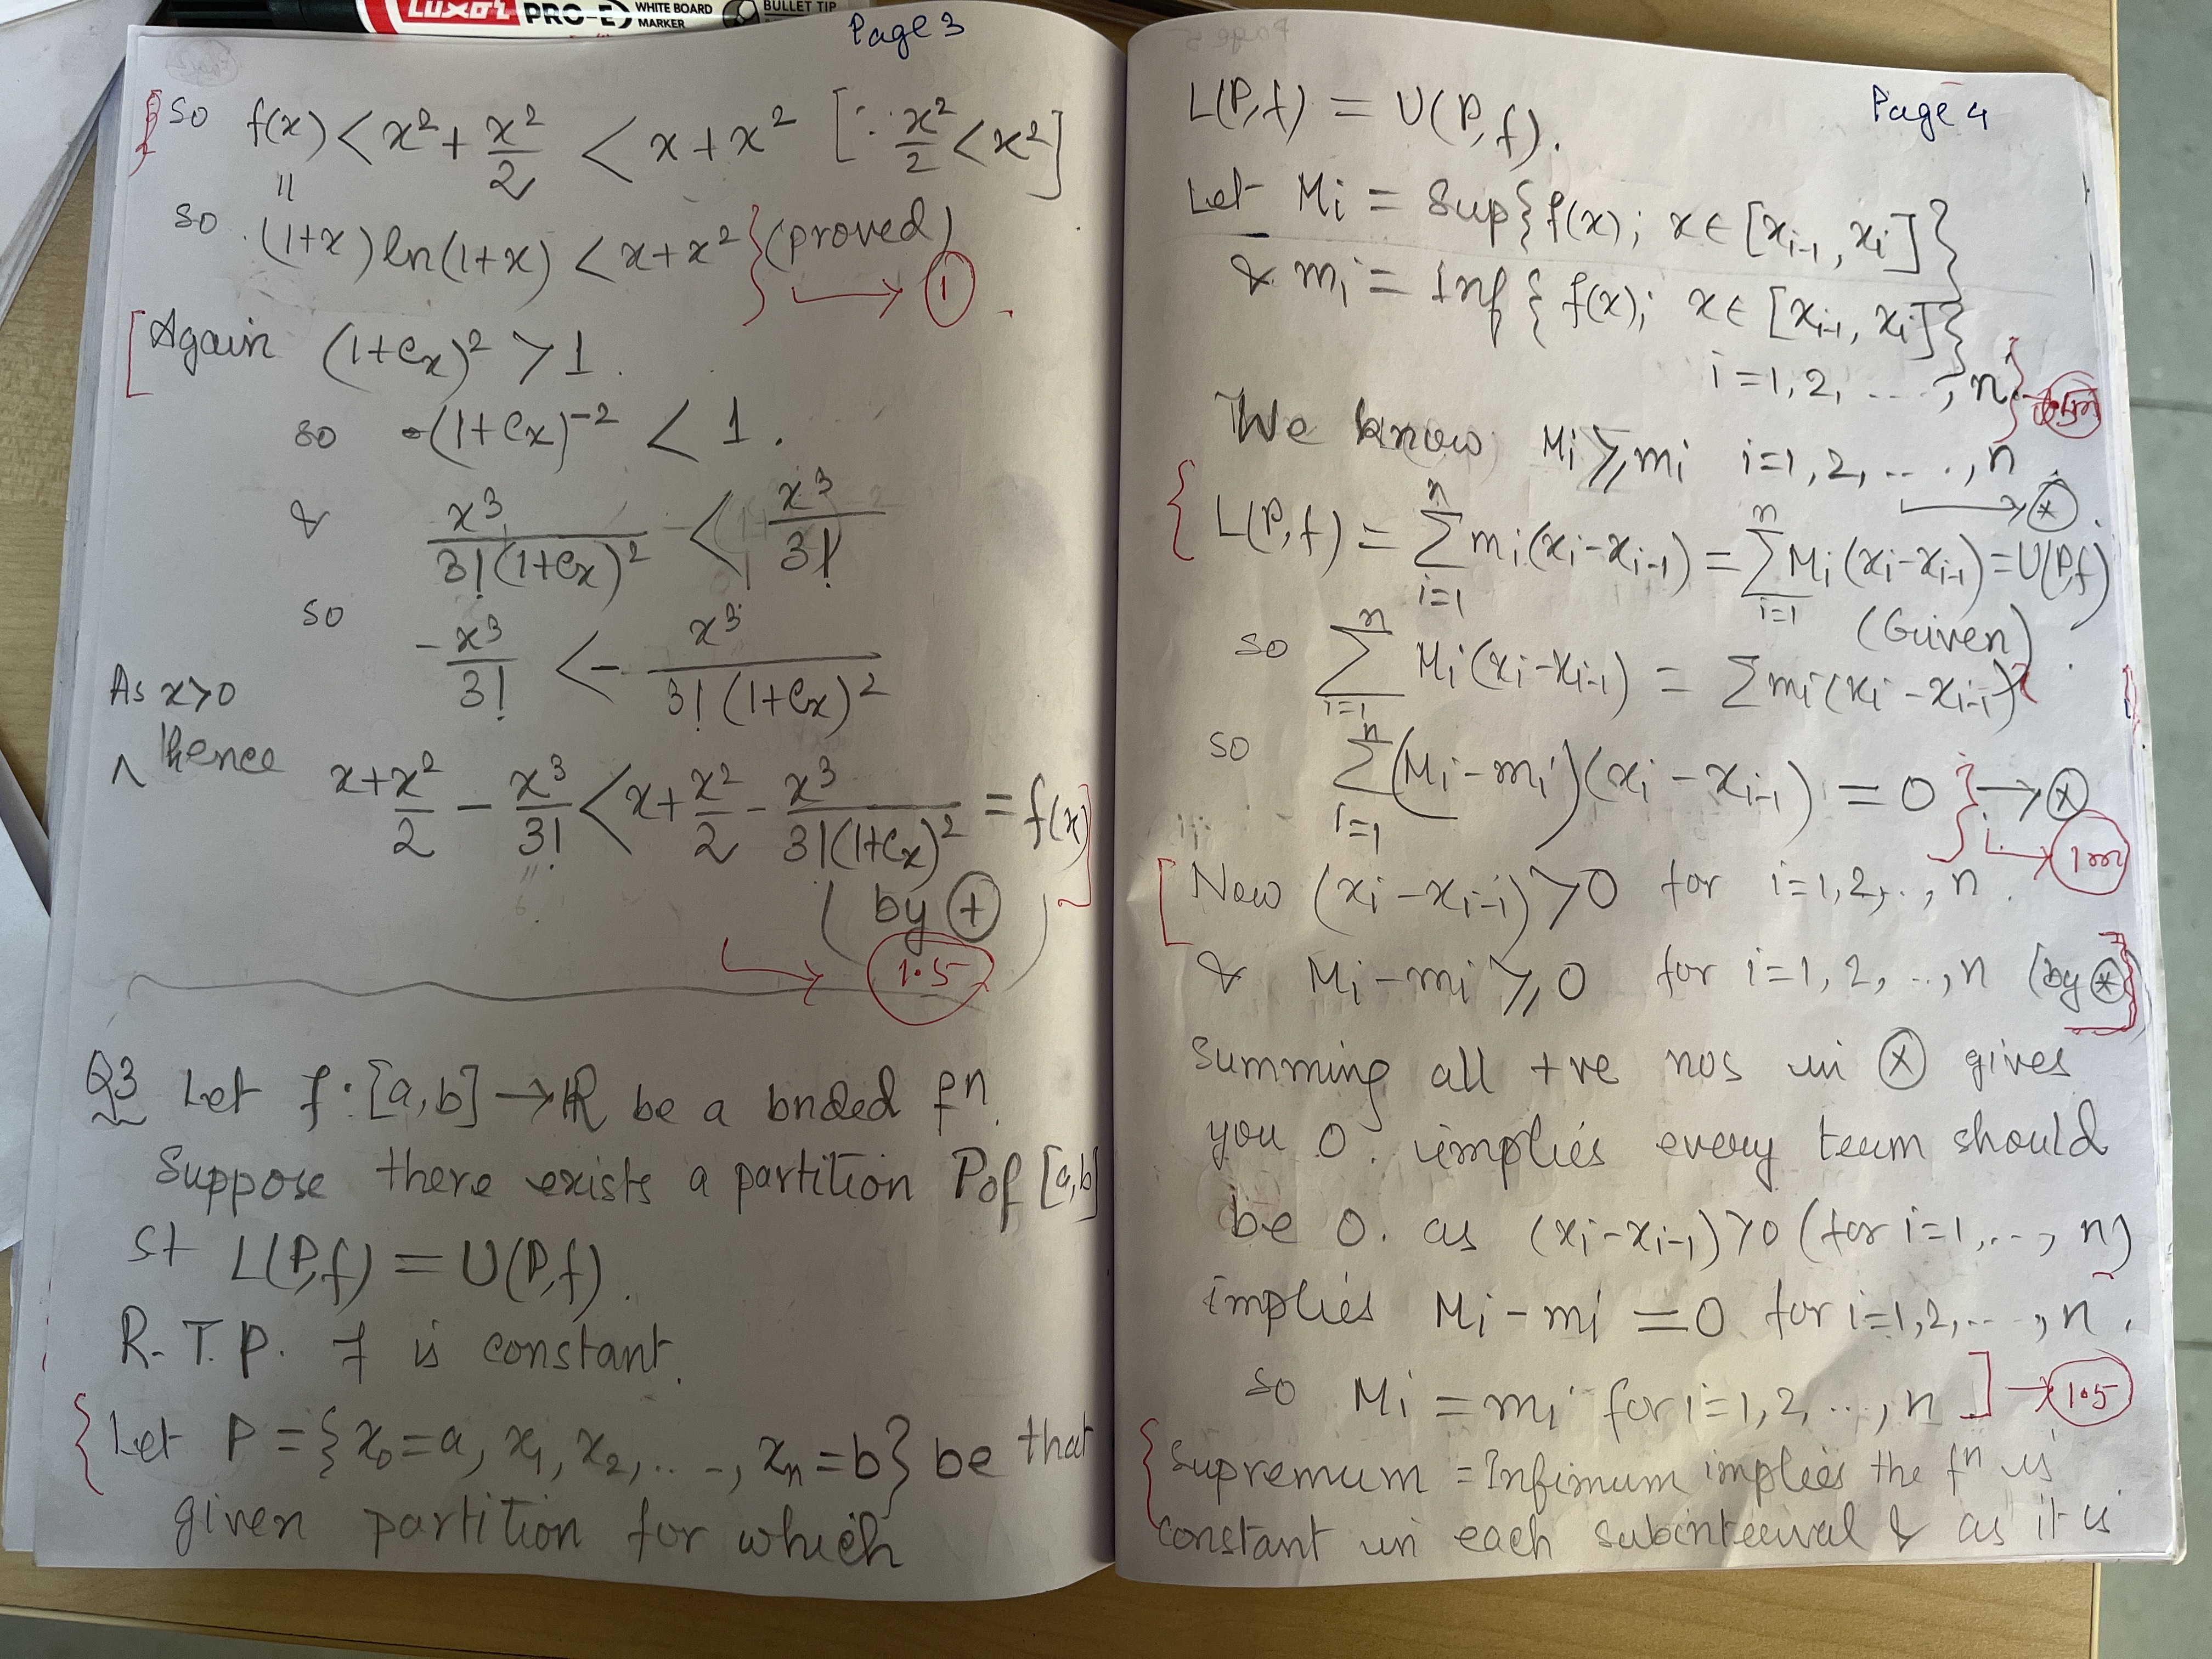 Page 3
so f(x) < x² + x²/2 < x + x² [∵ x²/2 < x²]
"
so (1+x) ln(1+x) < x + x² } (proved)
→ 1
[Again (1+cₓ)² > 1.
so -(1+cₓ)⁻² < 1.
& x³/3!(1+cₓ)² < x³/3!
so -x³/3! < - x³/3!(1+cₓ)²
As x>0
∧ Hence x + x²/2 - x³/3! < x + x²/2 - x³/3!(1+cₓ)² = f(x)
(by +) ]
→ 1.5
Q3 Let f: [a,b] → R be a bnded fn.
Suppose there exists a partition P of [a,b]
st L(P,f) = U(P,f).
R.T.P. f is constant.
{ Let P = {x₀=a, x₁, x₂, ..., xₙ=b} be that
given partition for which
Page 4
L(P,f) = U(P,f).
Let Mᵢ = Sup{f(x); x∈[xᵢ₋₁, xᵢ]}
& mᵢ = Inf{f(x); x∈[xᵢ₋₁, xᵢ]}
i=1,2,....,n }
We know Mᵢ ≥ mᵢ i=1,2,...,n → *
{ L(P,f) = Σᵢ₌₁ⁿ mᵢ(xᵢ-xᵢ₋₁) = Σᵢ₌₁ⁿ Mᵢ(xᵢ-xᵢ₋₁) = U(P,f)
(Given)
so Σᵢ₌₁ⁿ Mᵢ(xᵢ-xᵢ₋₁) = Σ mᵢ(xᵢ-xᵢ₋₁).
so Σᵢ₌₁ⁿ (Mᵢ-mᵢ)(xᵢ-xᵢ₋₁) = 0 } → X
[Now (xᵢ-xᵢ₋₁) > 0 for i=1,2,..,n.
& Mᵢ-mᵢ ≥ 0 for i=1,2,..,n (by *)
Summing all +ve nos in X gives
you 0. implies every term should
be 0. as (xᵢ-xᵢ₋₁)>0 (for i=1,..,n)
implies Mᵢ-mᵢ = 0 for i=1,2,...,n.
so Mᵢ = mᵢ for i=1,2,..,n ] → 1.5
{ supremum = Infimum implies the fn is
constant in each subinterval & as it is
LUXOR PRO-E WHITE BOARD MARKER BULLET TIP